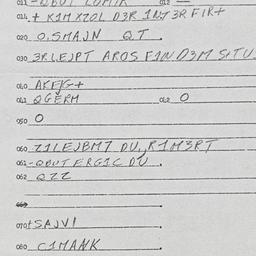 014 + K1M XZOL D3R 1NT 3R FIRT
020 O.SMAJN QT .
030 3RLEJPT AROS F1N D3M SITU
040 AKFJG+
041 QGERM 042 O
050 O
060 Z1LEJBM7 DU, R1M3RT
061 -QBUTERG1C DU .
062 QZZ
069
070 +SAJV1
080 C1MANK